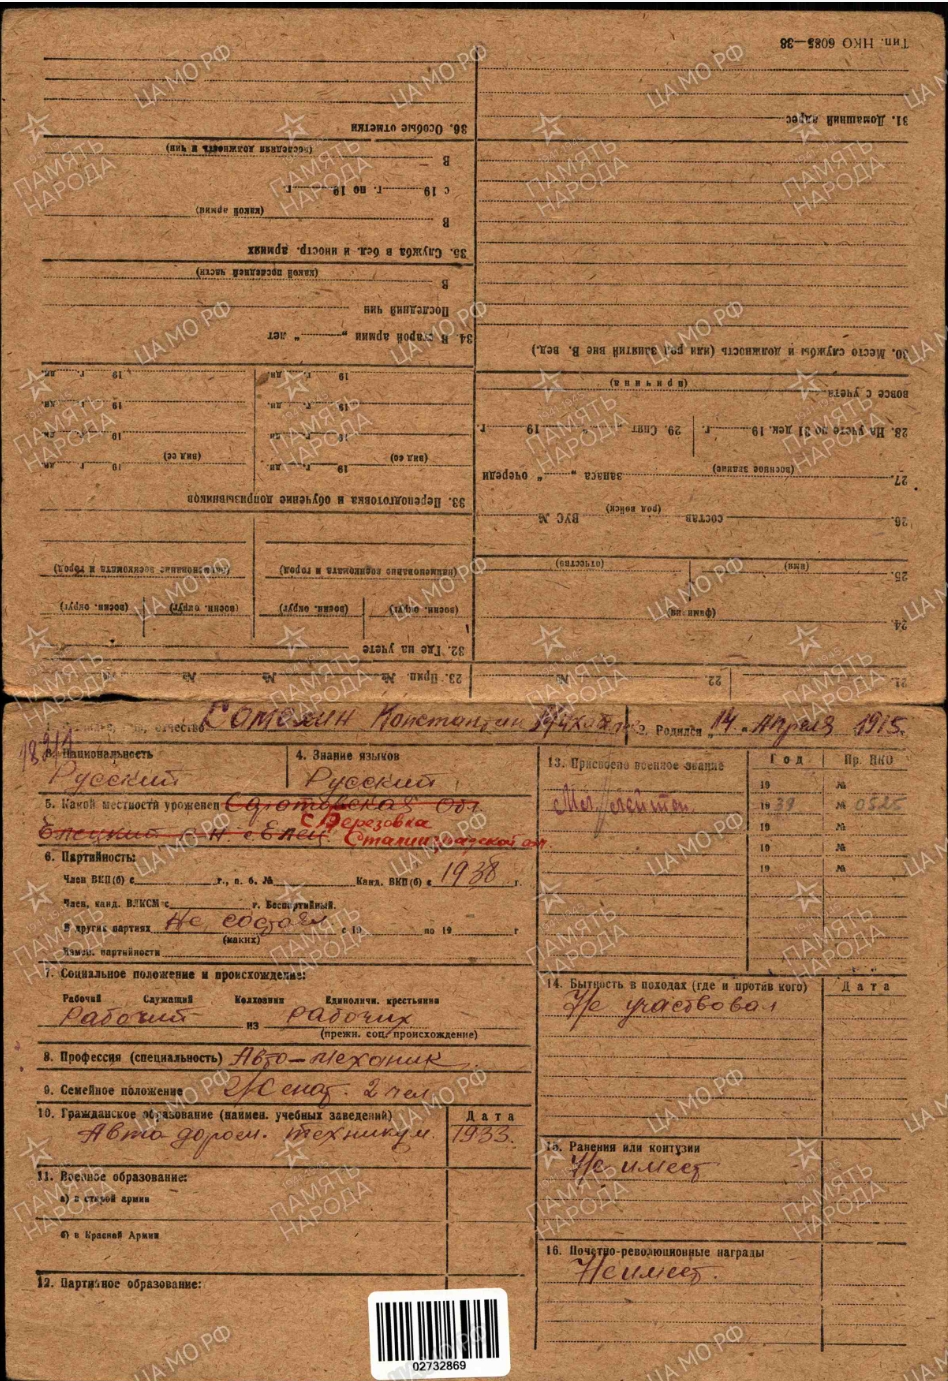 Тип. НКО 6085—38
31. Домашний адрес
30. Место службы и должность (или род занятий вне В. вед.)
вовсе с учета
(причина)
28. На учете по 31 дек. 19 г.
29. Снят „ “ 19 г.
27.
(военное звание)
запаса „ “ очереди
26. состав
(род войск)
ВУС №
25.
(имя)
(отчество)
24.
(фамилия)
21.
22
36. Особые отметки
(последняя должность и чин)
В
с 19 г. по 19 г
(какой армии)
В
35. Служба в бел. и иностр. армиях
(какой последней части)
В
Последний чин
34 В старой армии „ “ лет
19 г. дн.
19 г. дн.
19 г. дн.
19 г. дн.
19 г. дн.
19 г. дн.
19 г. дн.
19 г. дн.
(вид сб)
(вид сб)
33. Переподготовка и обучение допризывников
(наименование военкомата и город)
(наименование военкомата и город)
(воен. округ)
(воен. округ)
(воен. округ)
(воен. округ)
32. Где на учете
23. Прил. № № № №
отчество Сомохин Константин
2. Родился „14“ Апреля 1915.
3. Национальность
Русский
4. Знание языков
Русский
5. Какой местности уроженец Саратовская обл
с Березовка
Сталинградской обл
6. Партийность:
Член ВКП(б) с г., п. б. № Канд. ВКП(б) с 1938 г.
Член, канд. ВЛКСМ с г. Беспартийный.
В других партиях Не состоял с 19 по 19 г
(каких)
Измен. партийности
7. Социальное положение и происхождение:
Рабочий Служащий Колхозник Единоличн. крестьянин
Рабочий из рабочих
(прежн. соц. происхождение)
8. Профессия (специальность) Авто-механик
9. Семейное положение Женат. 2 чел
10. Гражданское образование (наимен. учебных заведений)
Дата
Авто дорожн. техникум
1933.
11. Военное образование:
а) в старой армии
б) в Красной Армии
12. Партийное образование:
13. Присвоено военное звание
Год
Пр. НКО
19 №
Мл. лейтен. 1939 № 0525
19 №
19 №
19 №
14. Бытность в походах (где и против кого)
Дата
Не участвовал
15. Ранения или контузии
Не имеет
16. Почетно-революционные награды
Не имеет.
02732869
ПАМЯТЬ НАРОДА
ЦА МО РФ